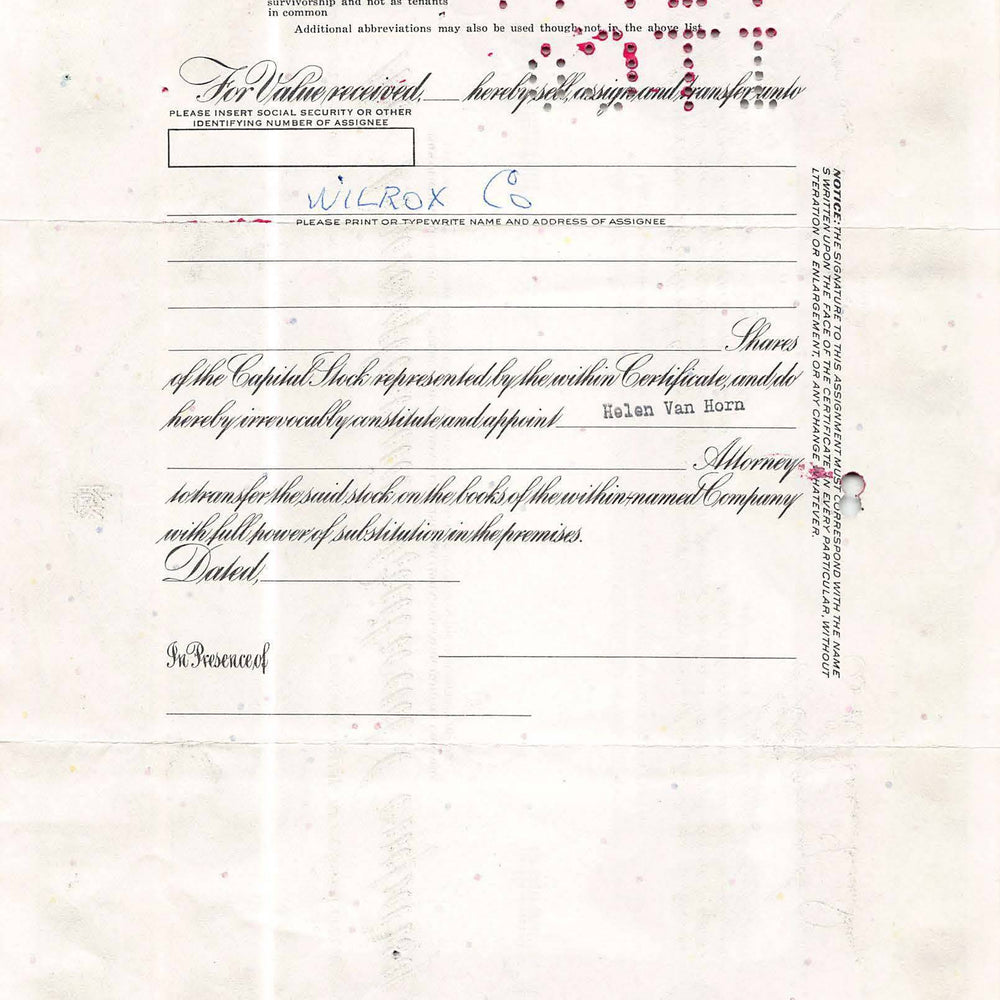 survivorship and not as tenants
in common
Additional abbreviations may also be used though not in the above list.
For Value received, hereby sell, assign and transfer unto
PLEASE INSERT SOCIAL SECURITY OR OTHER
IDENTIFYING NUMBER OF ASSIGNEE
WILROX Co
PLEASE PRINT OR TYPEWRITE NAME AND ADDRESS OF ASSIGNEE
Shares
of the Capital Stock represented by the within Certificate, and do
hereby irrevocably constitute and appoint Helen Van Horn
Attorney
to transfer the said stock on the books of the within-named Company
with full power of substitution in the premises.
Dated,
In Presence of
NOTICE: THE SIGNATURE TO THIS ASSIGNMENT MUST CORRESPOND WITH THE NAME
S WRITTEN UPON THE FACE OF THE CERTIFICATE IN EVERY PARTICULAR, WITHOUT
LTERATION OR ENLARGEMENT, OR ANY CHANGE WHATEVER.